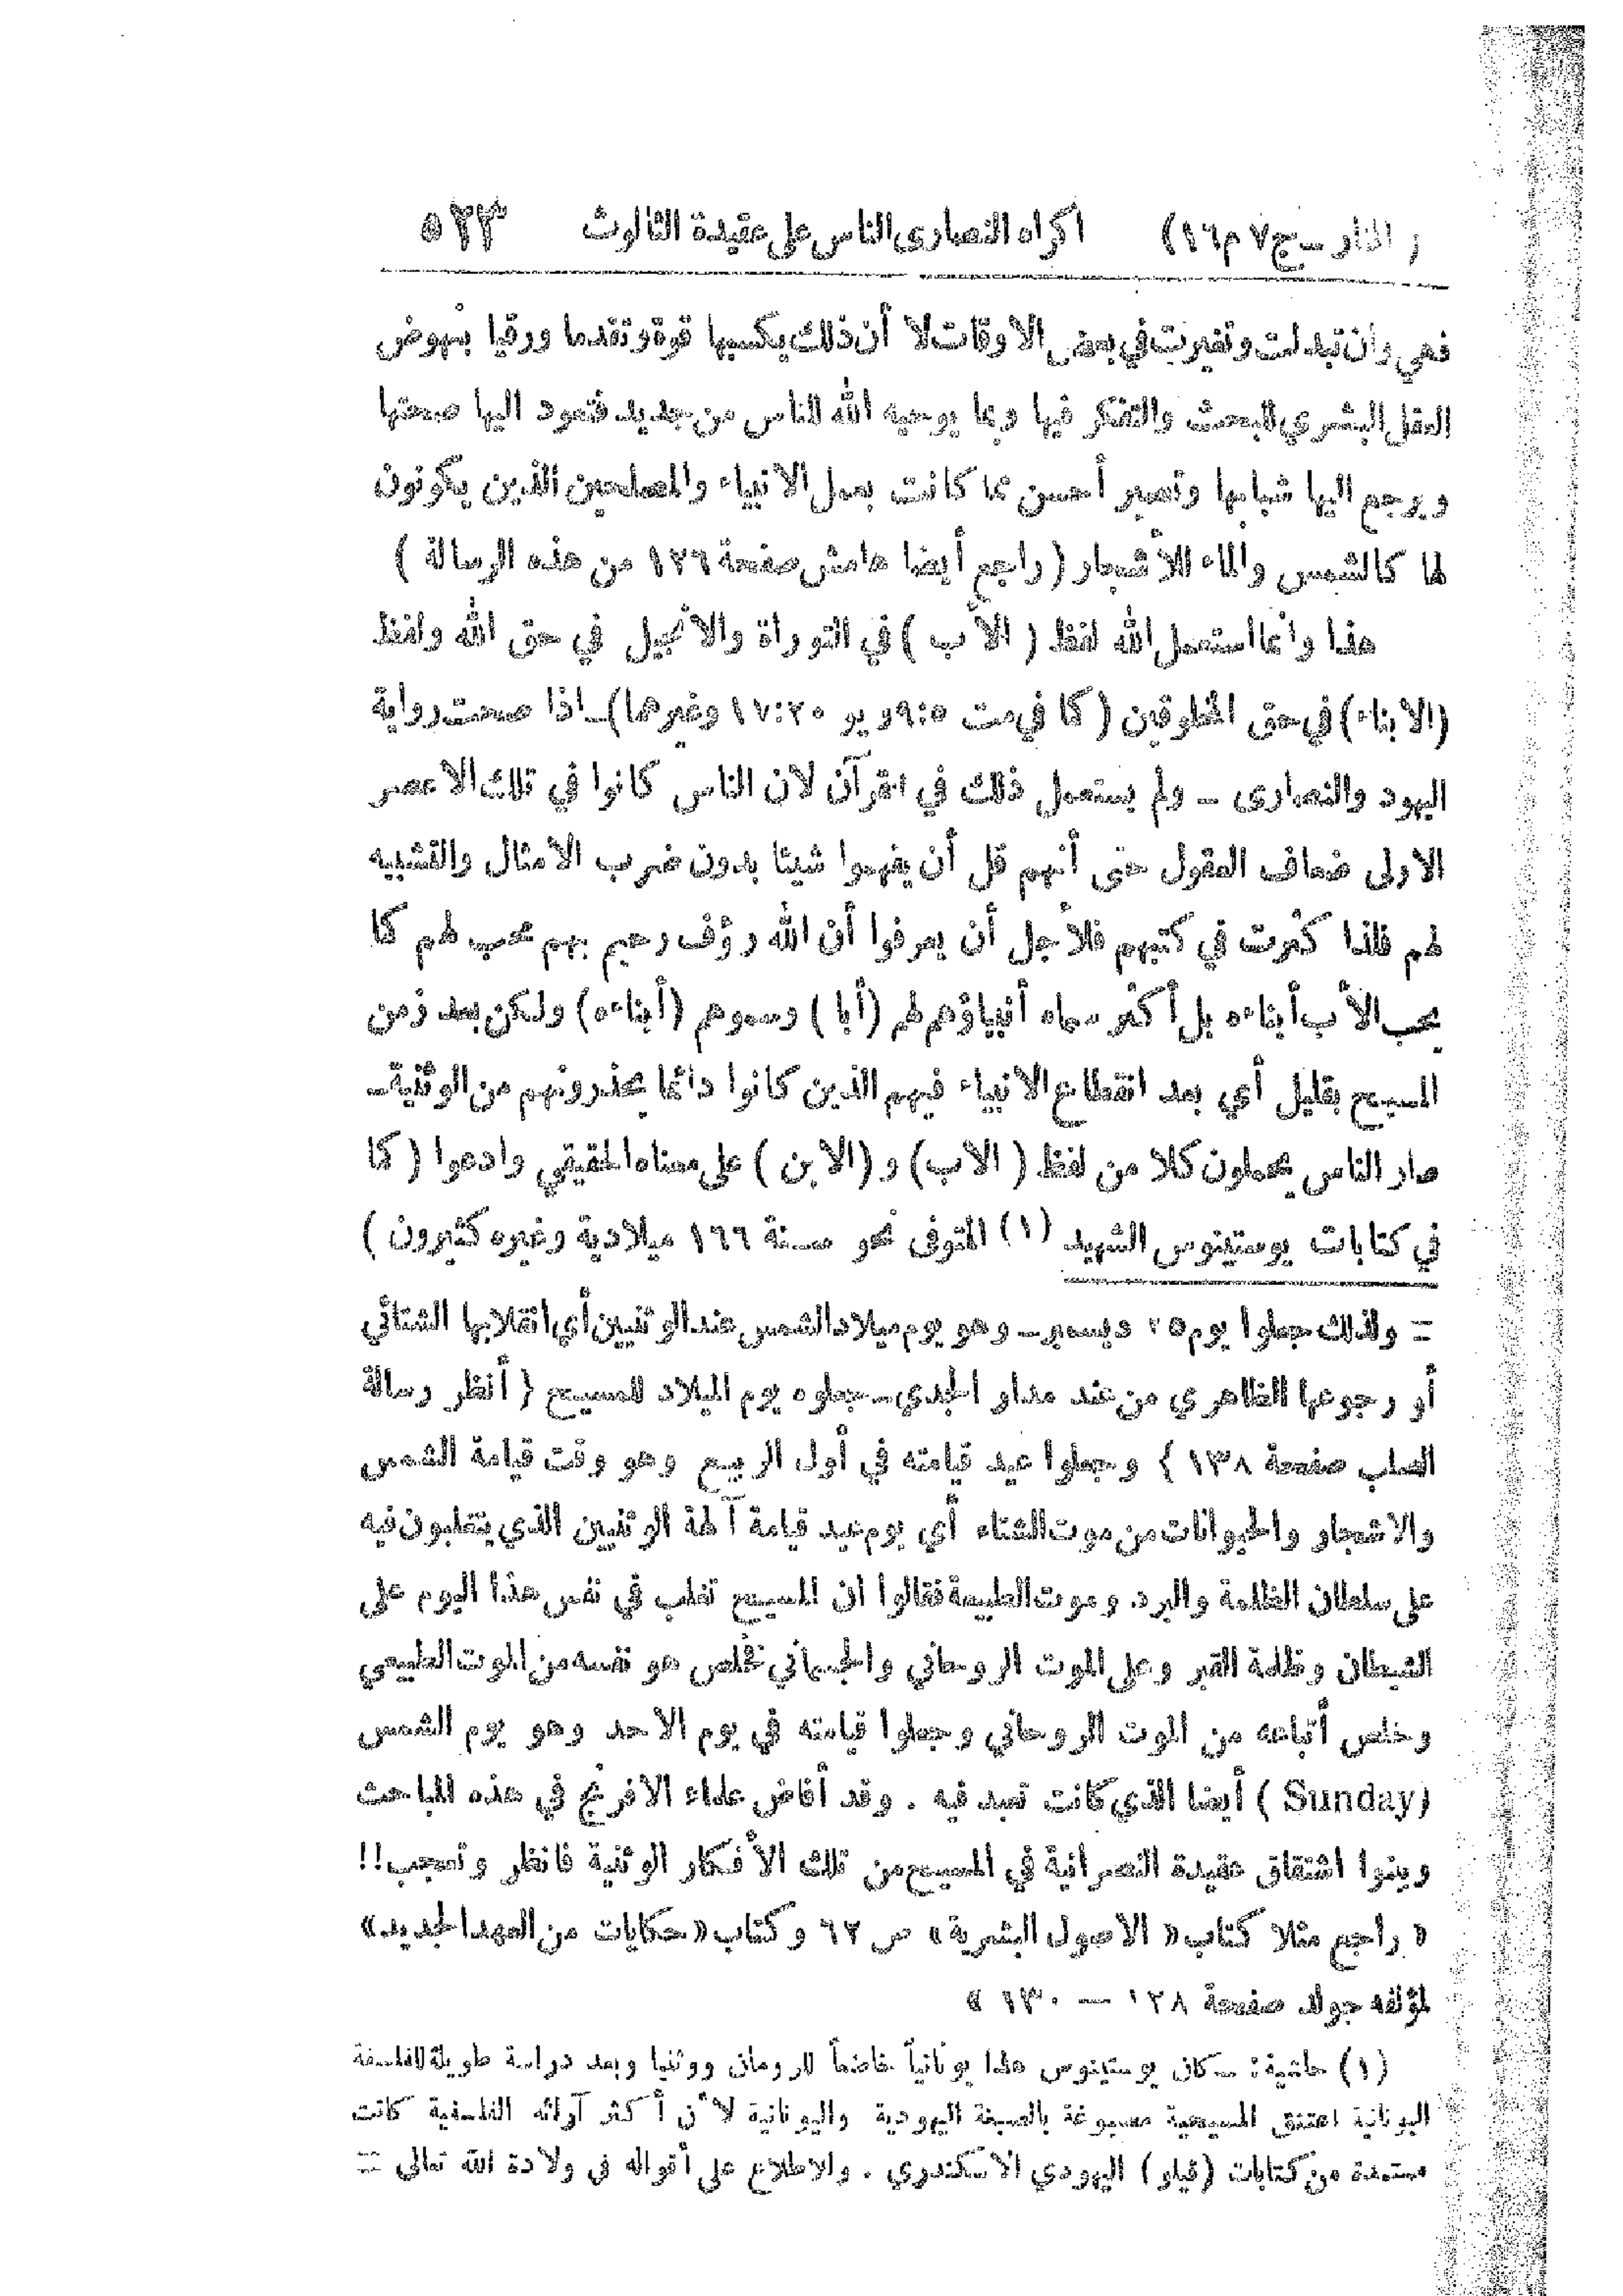 ( المنار – ج ٧ م ١٦ ) اكراه النصارى الناس على عقيدة الثالوث ٥٢٣
فهي وان تبدلت وتغيرت في بعض الاوقات لا أن ذلك يكسبها قوة وتقدما ورقيا بنهوض
العقل البشري للبحث والتفكر فيها وبما يوحيه الله للناس من جديد فتعود اليها صحتها
ويرجع اليها شبابها وتصير أحسن مما كانت بعمل الانبياء والمصلحين الذين يكونون
لها كالشمس والماء للأشجار ( راجع أيضا هامش صفحة ١٢٦ من هذه الرسالة )
هذا وانما استعمل الله لفظ ( الأب ) في التوراة والانجيل في حق الله ولفظ
(الابناء) في حق المخلوقين ( كما في مت ٩:٥ ويو ١٧:٢٠ وغيرهما) ــ اذا صحت رواية
اليهود والنصارى – ولم يستعمل ذلك في القرآن لان الناس كانوا في تلك الاعصر
الاولى ضعاف العقول حتى أنهم قل أن يفهموا شيئا بدون ضرب الامثال والتشبيه
لهم فلذا كثرت في كتبهم فلأجل أن يعرفوا أن الله رؤف رحيم بهم محب لهم كما
يحب الأب أبناءه بل أكثر سماه أنبياؤهم لهم (أبا ) وسموهم (أبناءه) ولكن بعد زمن
المسيح بقليل أي بعد انقطاع الانبياء فيهم الذين كانوا دائما يحذرونهم من الوثنية ــ
صار الناس يحملون كلا من لفظ ( الاب) و (الابن ) على معناه الحقيقي وادعوا ( كما
في كتابات يوستينوس الشهيد (١) المتوفى نحو سنة ١٦٦ ميلادية وغيره كثيرون )
= ولذلك جعلوا يوم ٢٥ ديسمبر ــ وهو يوم ميلاد الشمس عند الوثنيين أي انقلابها الشتائي
أو رجوعها الظاهري من عند مدار الجدي ــ جعلوه يوم الميلاد للمسيح { أنظر رسالة
الصلب صفحة ١٣٨ } وجعلوا عيد قيامته في أول الربيع وهو وقت قيامة الشمس
والاشجار والحيوانات من موت الشتاء أي يوم عيد قيامة آلهة الوثنيين الذي يتغلبون فيه
على سلطان الظلمة والبرد. وموت الطبيعة فقالوا ان المسيح تغلب في نفس هذا اليوم على
الشيطان وظلمة القبر وعلى الموت الروحاني والجسماني فخلص هو نفسه من الموت الطبيعي
وخلص أتباعه من الموت الروحاني وجعلوا قيامته في يوم الاحد وهو يوم الشمس
(Sunday ) أيضا الذي كانت تعبد فيه . وقد أفاض علماء الافرنج في هذه المباحث
وبينوا اشتقاق عقيدة النصرانية في المسيح من تلك الأفكار الوثنية فانظر وتعجب!!
« راجع مثلا كتاب « الاصول البشرية » ص ٦٢ وكتاب « حكايات من العهد الجديد »
لمؤلفه جولد صفحة ١٢٨ — ١٣٠ »
(١) حاشية : ــ كان يوستينوس هذا يونانياً خاضعاً للرومان ووثنيا وبعد دراسة طويلة للفلسفة
اليونانية اعتنق المسيحية مصبوغة بالصبغة اليهودية واليونانية لأن أكثر آرائه الفلسفية كانت
مستمدة من كتابات (فيلو ) اليهودي الاسكندري . والاطلاع على أقواله في ولادة الله تعالى =